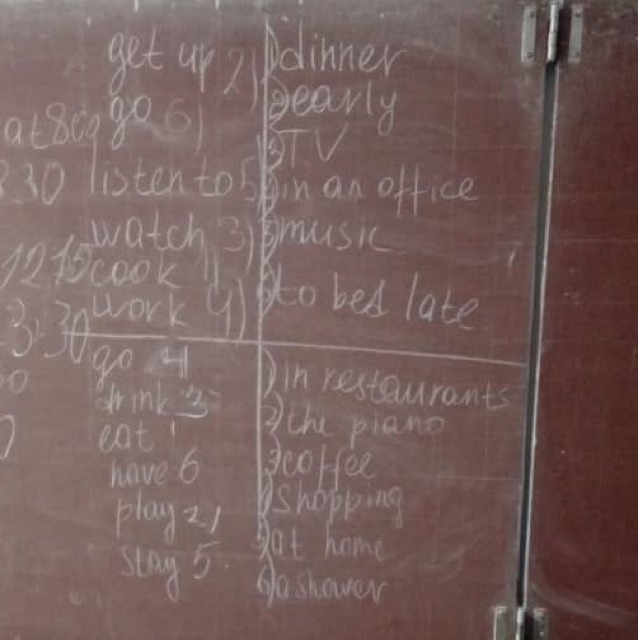 get up 2) 1) dinner
go 6) 2) early
at 8
3) TV
830 listen to 5) 4) in an office
watch 3) 5) music
1215 cook 1)
work 4) 6) to bed late
3:30
go 4 1) in restaurants
drink 3 2) the piano
eat 1
have 6 3) coffee
play 2) 4) Shopping
stay 5 5) at home
6) a shower